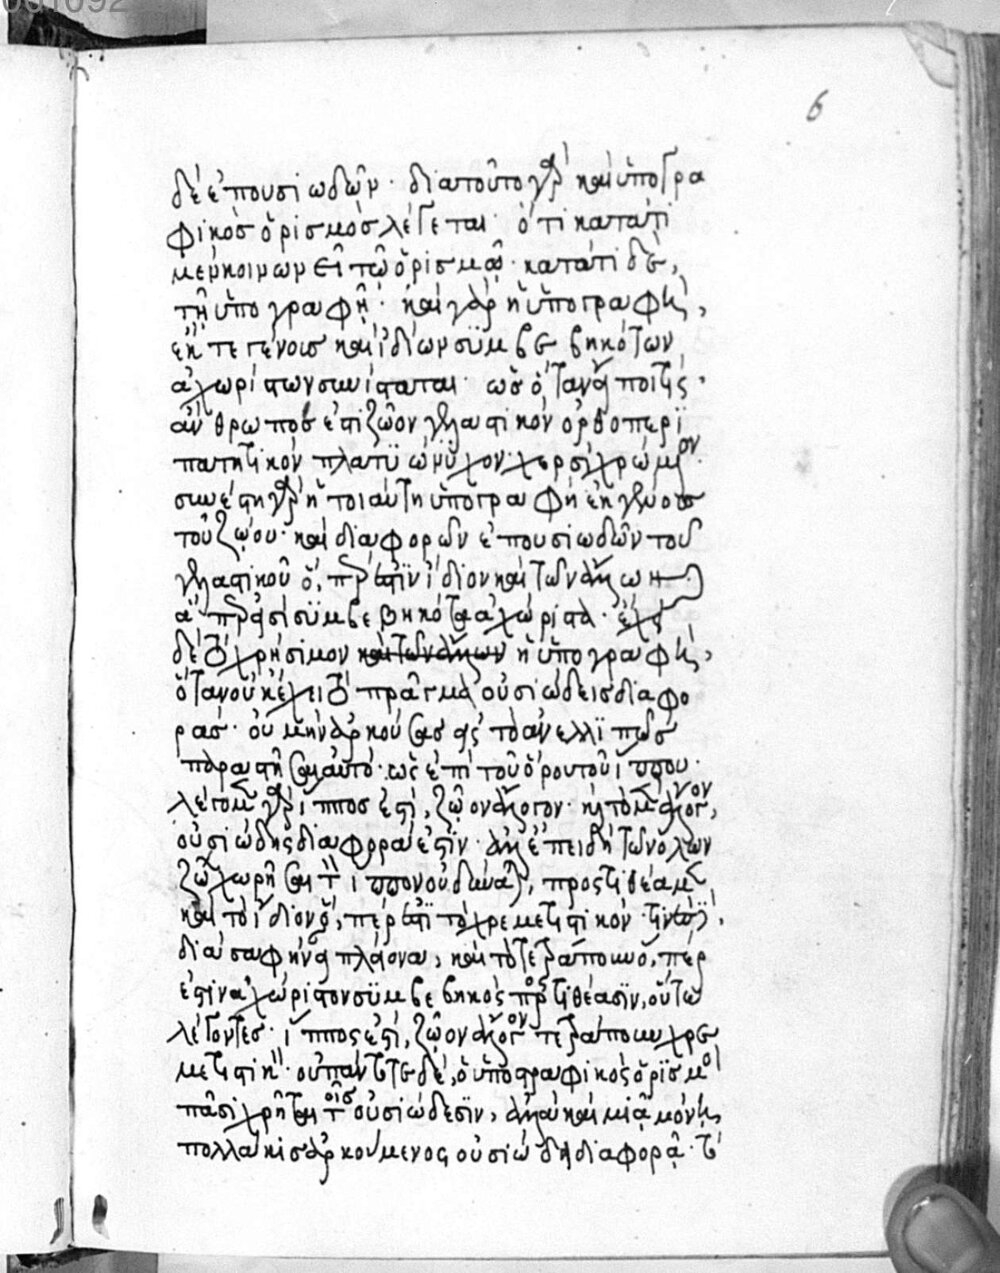 6
δὲ ἐπουσιωδῶν · διατοῦτο γὰρ καὶ ὑπογρα
φικὸς ὁρισμὸς λέγεται · ὅτι κατάτι
μὲν κοινωνεῖ τῶ ὁρισμῶ · κατάτι δὲ,
τῆ ὑπογραφῆ · καὶ γὰρ ἡ ὑπογραφὴ,
ἐκ τε γένους καὶ ἰδίων συμβεβηκότων
ἀχωρίστων συνίσταται · ὡς ὅταν
ἄνθρωπος ἐστὶ ζῶον γελαστικὸν ὀρθοπερι
πατητικὸν πλατυώνυχον ·
συνέστη γὰρ ἡ τοιαύτη ὑπογραφὴ ἐκ γένους
τοῦ ζώου · καὶ διαφορῶν ἐπουσιωδῶν τοῦ
γελαστικοῦ ὅ, περ ἐστὶν ἴδιον καὶ τῶν ἄλλων
ἅ περ εἰσὶ συμβεβηκότα ἀχώριστα ·
δὲ τὸ χρήσιμον ἡ ὑπογραφὴ,
ὅταν οὐκ ἔχει τὸ πρᾶγμα οὐσιώδεις διαφο
ρὰς · οὐ μὴν ἀρκούσας εἰς τὸ ἀνελλιπῶς
παραστῆσαι αὐτό · ὡς ἐπὶ τοῦ ὅρου τοῦ ἵππου ·
λέγομεν γὰρ ἵππος ἐστὶ, ζῶον ἄλογον · καὶ τὸ μὲν ἄλογον,
οὐσιώδης διαφορά ἐστιν · ἀλλ' ἐπειδὴ τῶν ὅλων
ζώων χωρῆσαι τὸν ἵππον οὐ δύναται, προστιθέαμεν
καὶ τὸ ἴδιον ὅ, περ ἐστὶ τὸ χρεμετιστικὸν ·
καὶ τὸ τετράπουν ὅ, περ
ἐστὶν ἀχώριστον συμβεβηκὸς προστιθέασιν, οὕτω
λέγοντες · ἵππος ἐστὶ, ζῶον ἄλογον τετράπουν χρε
μετιστικόν · οὐ πάντοτε δὲ, ὁ ὑπογραφικὸς ὁρισμὸς
πᾶσι χρῆται τοῖς οὐσιώδεσιν, ἀλλὰ καὶ μιᾷ μόνη,
πολλάκις ἀρκούμενος οὐσιώδη διαφορᾷ · τὸ